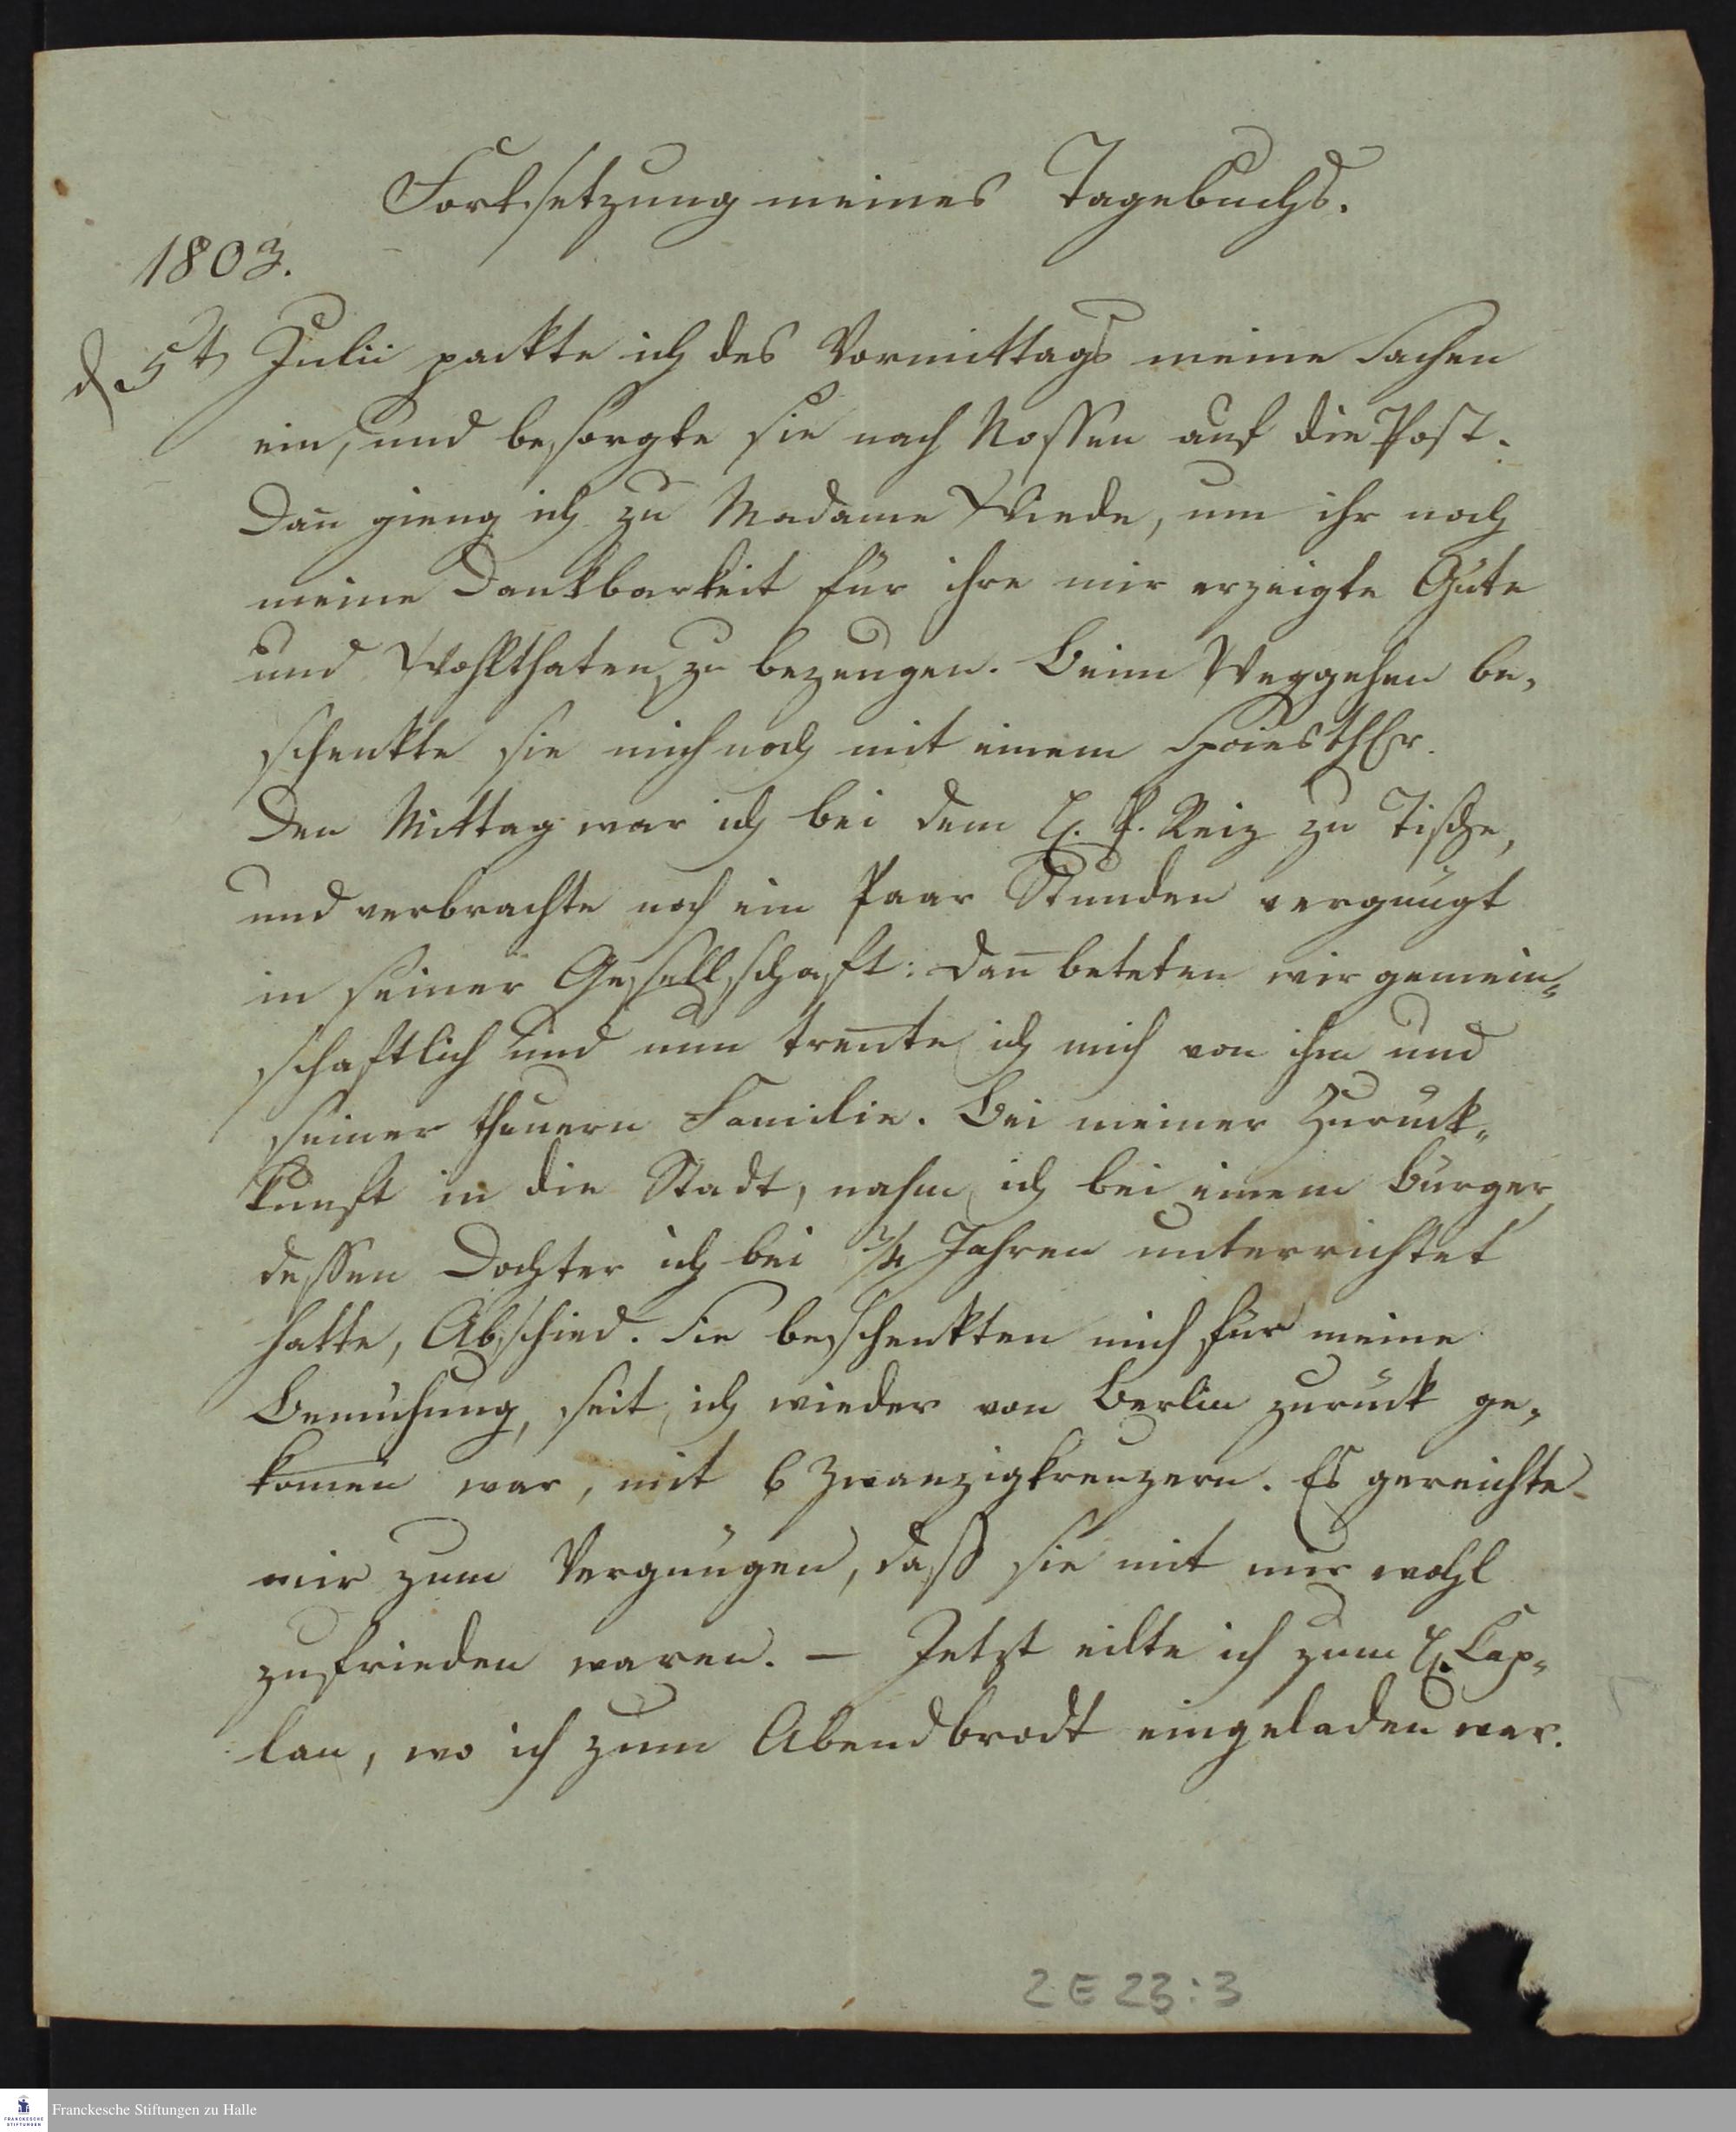 Fortsetzung meines Tagebuchs.
1803.
d. 5t Julii packte ich des Vormittags meine Sachen
ein, und besorgte sie nach Nossen auf die Post.
Dan̅ gieng ich zu Madame Wiede, um ihr noch
meine Dankbarkeit für ihre mir erzeigte Güte
und Wohlthaten zu bezeugen. Beim Weggehen be-
schenkte sie mich noch mit einem
Den Mittag war ich bei dem H. P. Reiz zu Tische,
und verbrachte noch ein Paar Stunden vergnügt
in seiner Gesellschaft: dan̅ beteten wir gemein-
schaftlich und nun tren̅te ich mich von ihm und
seiner theuern Familie. Bei meiner Zurück-
kunft in die Stadt, nahm ich bei einem Bürger,
dessen Dochter ich bei ¾ Jahren unterrichtet
hatte, Abschied. Sie beschenkten mich für meine
Bemühung, seit ich wieder von Berlin zurück ge-
kom̅en war, mit 6 Zwanzigkreuzern. Es gereichte
mir zum Vergnügen, daß sie mit mir wohl
zufrieden waren. – Jetzt eilte ich zum H. Cap-
lan, wo ich zum Abendbrodt eingeladen war.
2 E 23:3
FRANCKESCHE STIFTUNGEN
Franckesche Stiftungen zu Halle